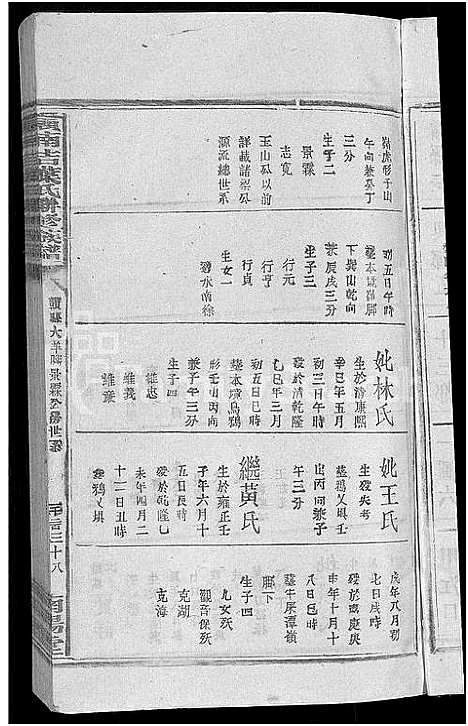 虎形子山
午向兼癸丁
三分
生子二
景霖
志寬
玉山公以前
詳載諸
源流總世系
初五日午時
下巽山乾向
兼辰戌三分
生子三
行元
行亨
行貞
生女一
適水南徐
妣林氏
生於清康熙
辛巳年五月
初三日午時
歿於清乾隆
乙巳年三月
初五日巳時
葬本境烏鴉
形壬山丙向
兼子午三分
生子四
維忠
維義
維章
妣王氏
生歿失考
葬鴉乂垻壬
山丙向兼子
午三分
繼黃氏
生於雍正壬
子年六月十
五日辰時
歿於乾隆乙
未年四月二
十二日丑時
葬鴉乂垻
戊年八月初
七日戌時
歿於嘉慶庚
申年十月十
八日巳時
葬牛屎潭嶺
脚下
生子四
九女歿
觀音保歿
克湖
克海
贛縣大羊
景霖公房世系